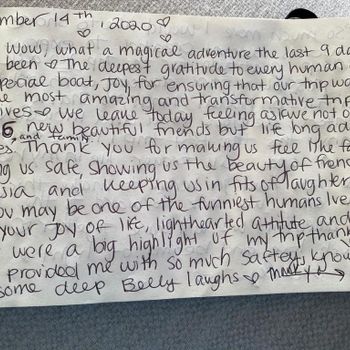 mber 14th, 2020 ♡
Wow, what a magical adventure the last 9 da
been ♡ The deepest gratitude to every human
pecial boat, Joy, for ensuring that our trip wa
e most amazing and transformative trip
ives ♡ we leave today feeling as if we not o
6 new beautiful friends but life long ad
and family
es. Thank you for making us feel like fa
ng us safe, showing us the beauty of frenc
sia and keeping us in fits of laughter
ou may be one of the funniest humans Ive
your Joy of life, lighthearted attitute and
were a big highlight of my trip thank
provided me with so much saftey, know
some deep Belly laughs ♡